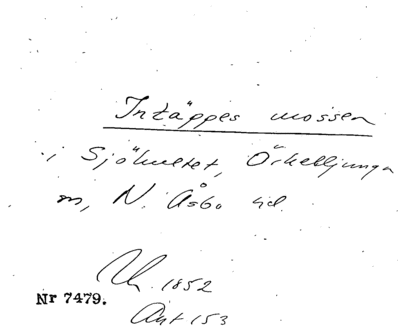 Intäppes mossen
i Sjöhultet, Örkelljunga
m, N. Åsbo hd.
1852
Nr 7479.
Ant 153